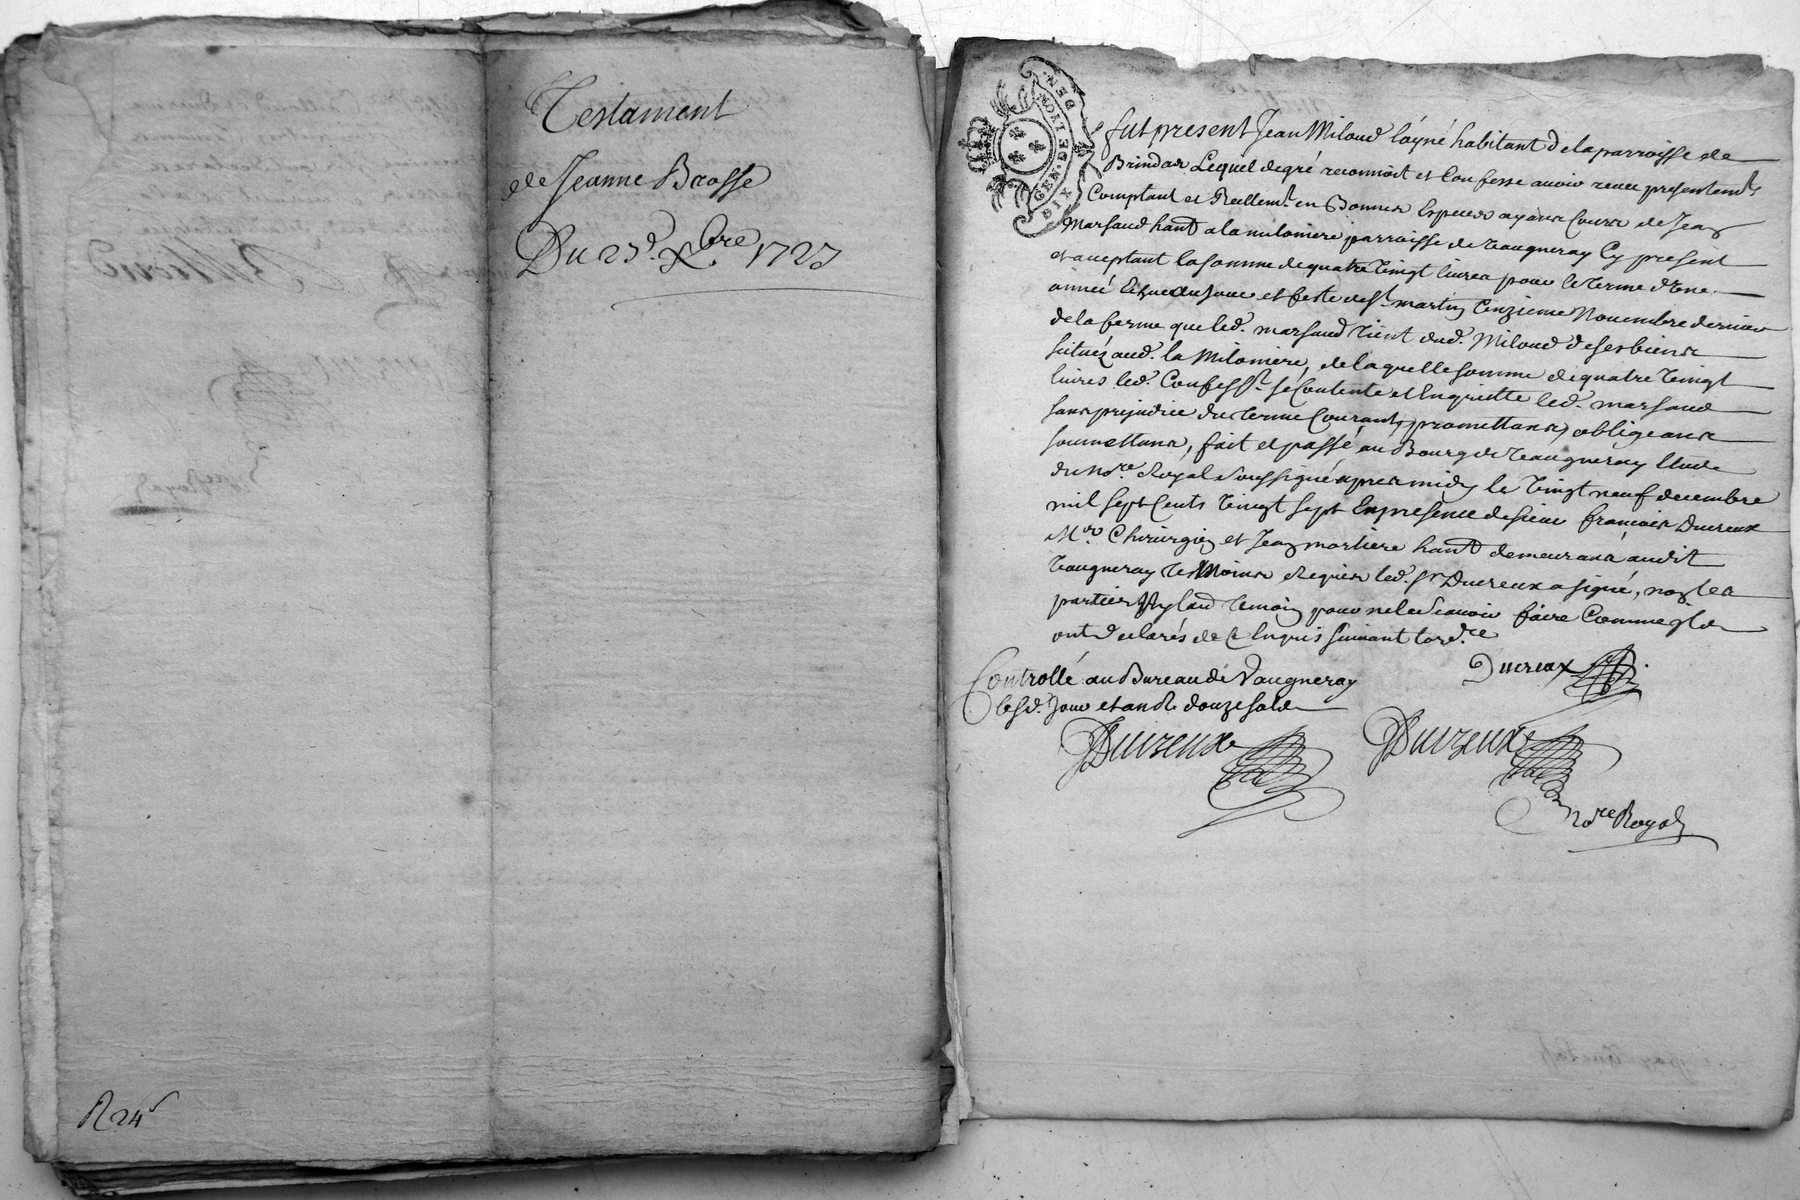 Testament
de Jeanne Brosse
Du 23e. Xbre 1727
R 24s
GEN. DE LYON
DIX DEN.
fut present Jean Miloud layné habitant de la parroisse de
Brindas Lequel de gré reconnoit et Confesse avoir receu presentemt
Comptant et Reellemt en Bonnes Especes ayans Cours de Jean
Marsaud hant a la miloniere parroisse de Vaugneray Cy present
et aceptant la somme de quatre vingt livres pour le terme d'une
année Echue au Jour et feste de St martin Onzieme Novembre dernier
de la ferme que led. marsaud tient dud. Miloud de ses biens
situéz aud. la Miloniere, de laquelle somme de quatre vingt
livres led. Confesst se Contente et Enquitte led. marsaud
sans prejudice du terme Courant, promettans, obligeans
soumettans, fait et passé au Bourg de Vaugneray Etude
du nore Royal soussigné apres midy le vingt neuf decembre
mil sept Cents vingt sept En presence de sieur francois Ducreux
Mre Chirurgien et Jean morliere hant demeurans audit
Vaugneray tesmoins Requis led. sr Ducreux a signé, non les
parties Ny laud temoin pour ne le scavoir faire Comme
ont declarés de Ce Enquis suivant lordce
Ducreux
Controllé au Bureau de Vaugneray
lesd. Jour et an R douze sols
Ducreux
Ducreux
Nore Royal